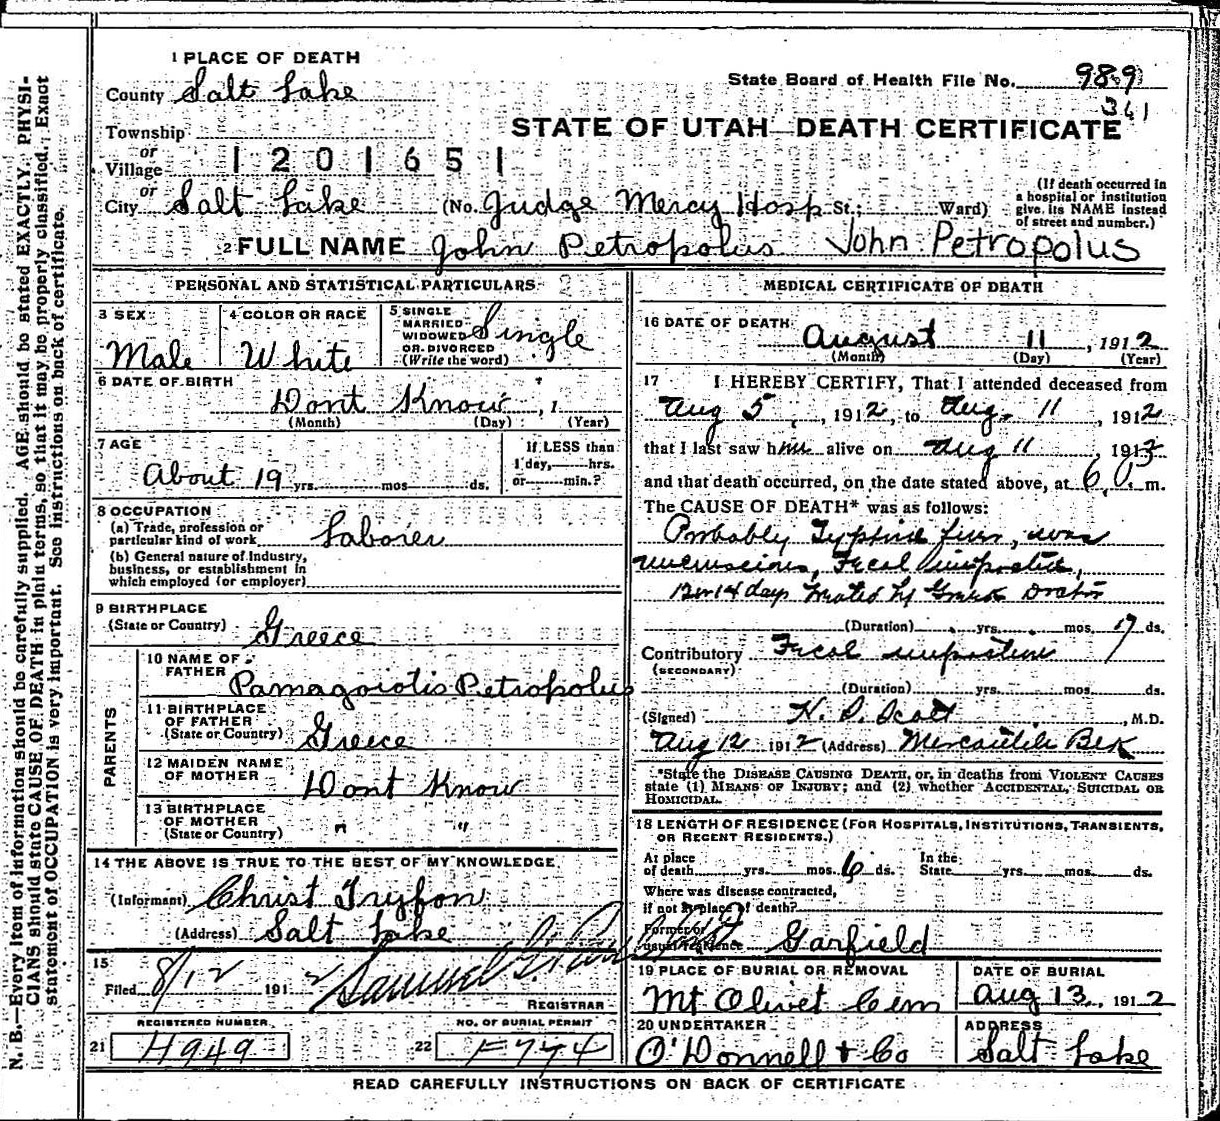 1 PLACE OF DEATH
County Salt Lake
State Board of Health File No. 989
361
Township
STATE OF UTAH—DEATH CERTIFICATE
or
Village
1201651
or
City Salt Lake (No. Judge Mercy Hosp St.; Ward)
(If death occurred in a hospital or institution give its NAME instead of street and number.)
2 FULL NAME John Petropolus John Petropolus
PERSONAL AND STATISTICAL PARTICULARS
3 SEX Male
4 COLOR OR RACE White
5 SINGLE MARRIED WIDOWED OR DIVORCED (Write the word) Single
6 DATE OF BIRTH Dont Know, 1
(Month) (Day) (Year)
7 AGE About 19 yrs. mos. ds.
If LESS than 1 day, hrs. or min.?
8 OCCUPATION
(a) Trade, profession or particular kind of work Laborer
(b) General nature of Industry, business, or establishment in which employed (or employer)
9 BIRTHPLACE
(State or Country) Greece
PARENTS
10 NAME OF FATHER Pamagoiotis Petropolus
11 BIRTHPLACE OF FATHER (State or Country) Greece
12 MAIDEN NAME OF MOTHER Dont Know
13 BIRTHPLACE OF MOTHER (State or Country) " "
14 THE ABOVE IS TRUE TO THE BEST OF MY KNOWLEDGE
(Informant) Christ Tryfon
(Address) Salt Lake
15
Filed 8/12 1912 Samuel G.
REGISTRAR
REGISTERED NUMBER
21 H949
NO. OF BURIAL PERMIT
22 F774
MEDICAL CERTIFICATE OF DEATH
16 DATE OF DEATH August 11, 1912
(Month) (Day) (Year)
17 I HEREBY CERTIFY, That I attended deceased from
Aug 5, 1912, to Aug. 11 1912
that I last saw him alive on Aug 11 1912
and that death occurred, on the date stated above, at 6 m.
The CAUSE OF DEATH* was as follows:
Probably Typhoid fever, was
unconscious, Fecal impaction,
12 or 14 days treated by Greek Doctor
(Duration) yrs. mos. 17 ds.
Contributory Fecal impaction
(SECONDARY)
(Duration) yrs. mos. ds.
(Signed) H. D. Scott, M.D.
Aug 12 1912 (Address) Mercantile Blk
*State the DISEASE CAUSING DEATH, or, in deaths from VIOLENT CAUSES state (1) MEANS OF INJURY; and (2) whether ACCIDENTAL, SUICIDAL OR HOMICIDAL.
18 LENGTH OF RESIDENCE (FOR HOSPITALS, INSTITUTIONS, TRANSIENTS, OR RECENT RESIDENTS.)
At place of death yrs. mos. 6 ds. In the State yrs. mos. ds.
Where was disease contracted,
if not in place of death?
Former or usual residence Garfield
19 PLACE OF BURIAL OR REMOVAL Mt Olivet Cem
DATE OF BURIAL Aug 13, 1912
20 UNDERTAKER O'Donnell + Co
ADDRESS Salt Lake
READ CAREFULLY INSTRUCTIONS ON BACK OF CERTIFICATE
N. B.—Every item of information should be carefully supplied. AGE should be stated EXACTLY. PHYSI-
CIANS should state CAUSE OF DEATH in plain terms, so that it may be properly classified. Exact
statement of OCCUPATION is very important. See instructions on back of certificate.